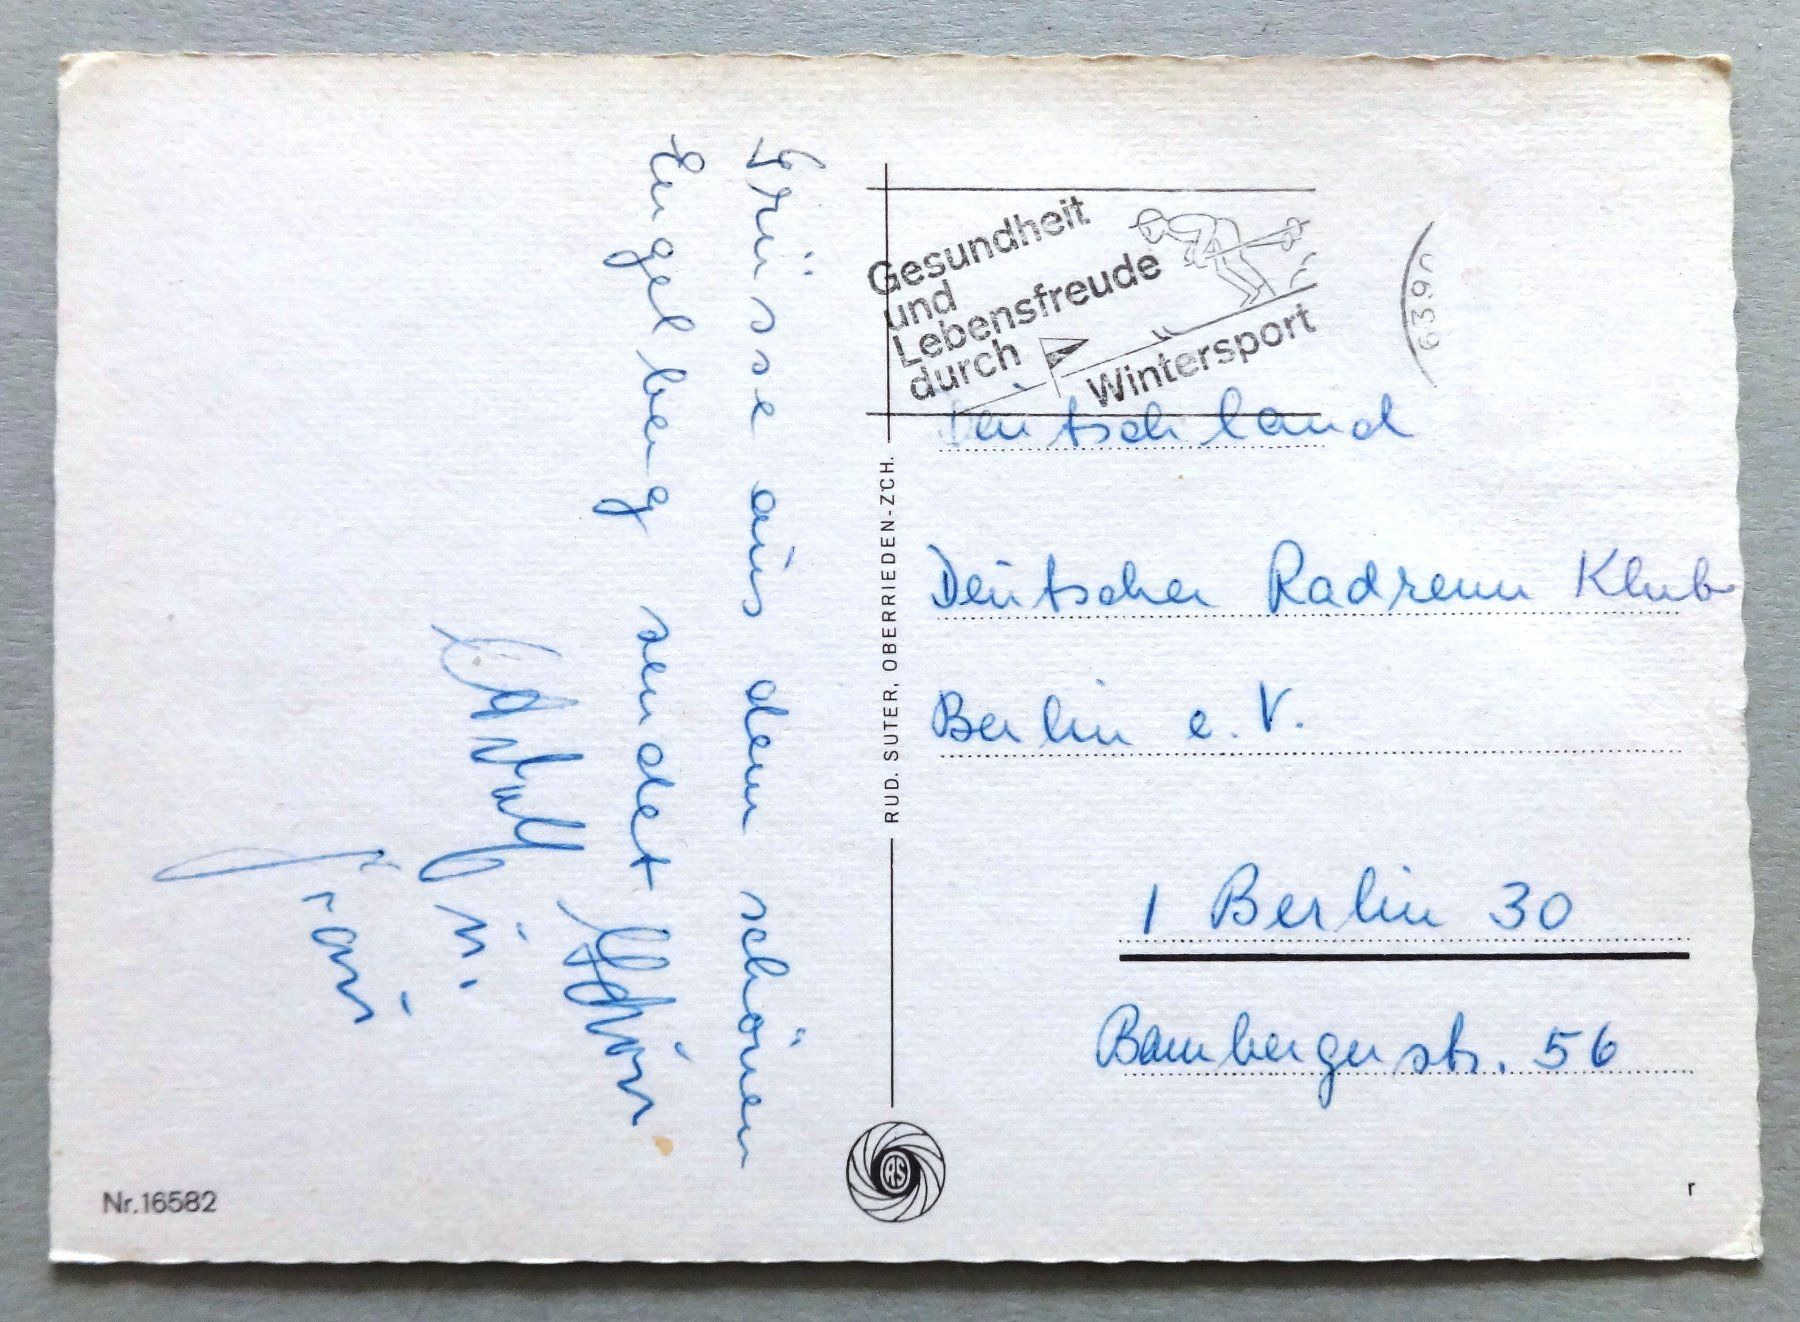 Grüsse aus dem schönen
Engelberg sendet
Gesundheit
und
Lebensfreude
durch
Wintersport
639
Deutschland
Deutscher Radrenn Klub
Berlin e. V.
1 Berlin 30
Bambergerstr. 56
RUD. SUTER, OBERRIEDEN-ZCH.
RS
Nr. 16582
r